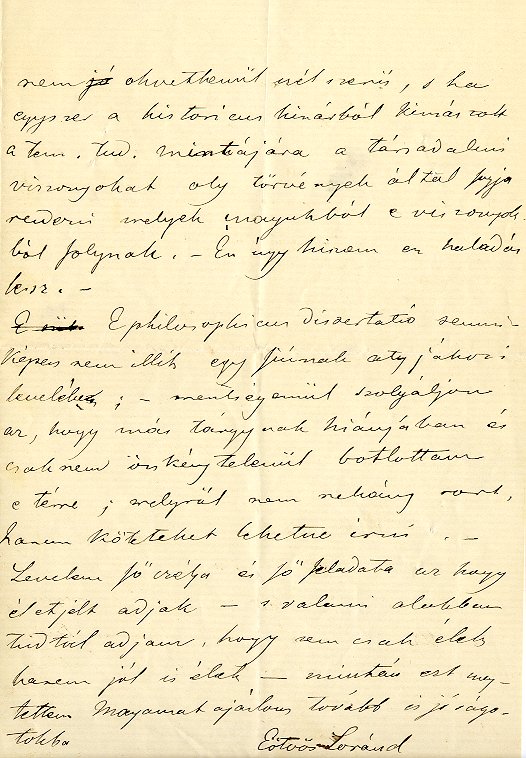 nem jó okvetlenül célszerű, s ha
egyszer a historicus hinárból kimászott
a tem. tud. mintájára a társadalmi
viszonyokat oly törvények által fogja
rendezni melyek maguktból e viszonyok-
ból folynak. – Én úgy hiszem ez haladás
lesz. –
E philosophicus dissertatió semmi-
képen nem illik egy fiúnak atyjához
levelébe ; – mentségemül szolgáljon
az, hogy más tárgynak hiányában és
csaknem önkénytelenül botlottam
e térre ; melyről nem néhány sort,
hanem köteteket lehetne írni. –
Levelem fő czélja és fő feladata az hogy
életjelt adjak – s valami alakban
tudtúl adjam, hogy nem csak élek
hanem jól is élek – miután ezt meg-
tettem Magamat ajánlom tovább is jóságo-
tokba
Eötvös Loránd